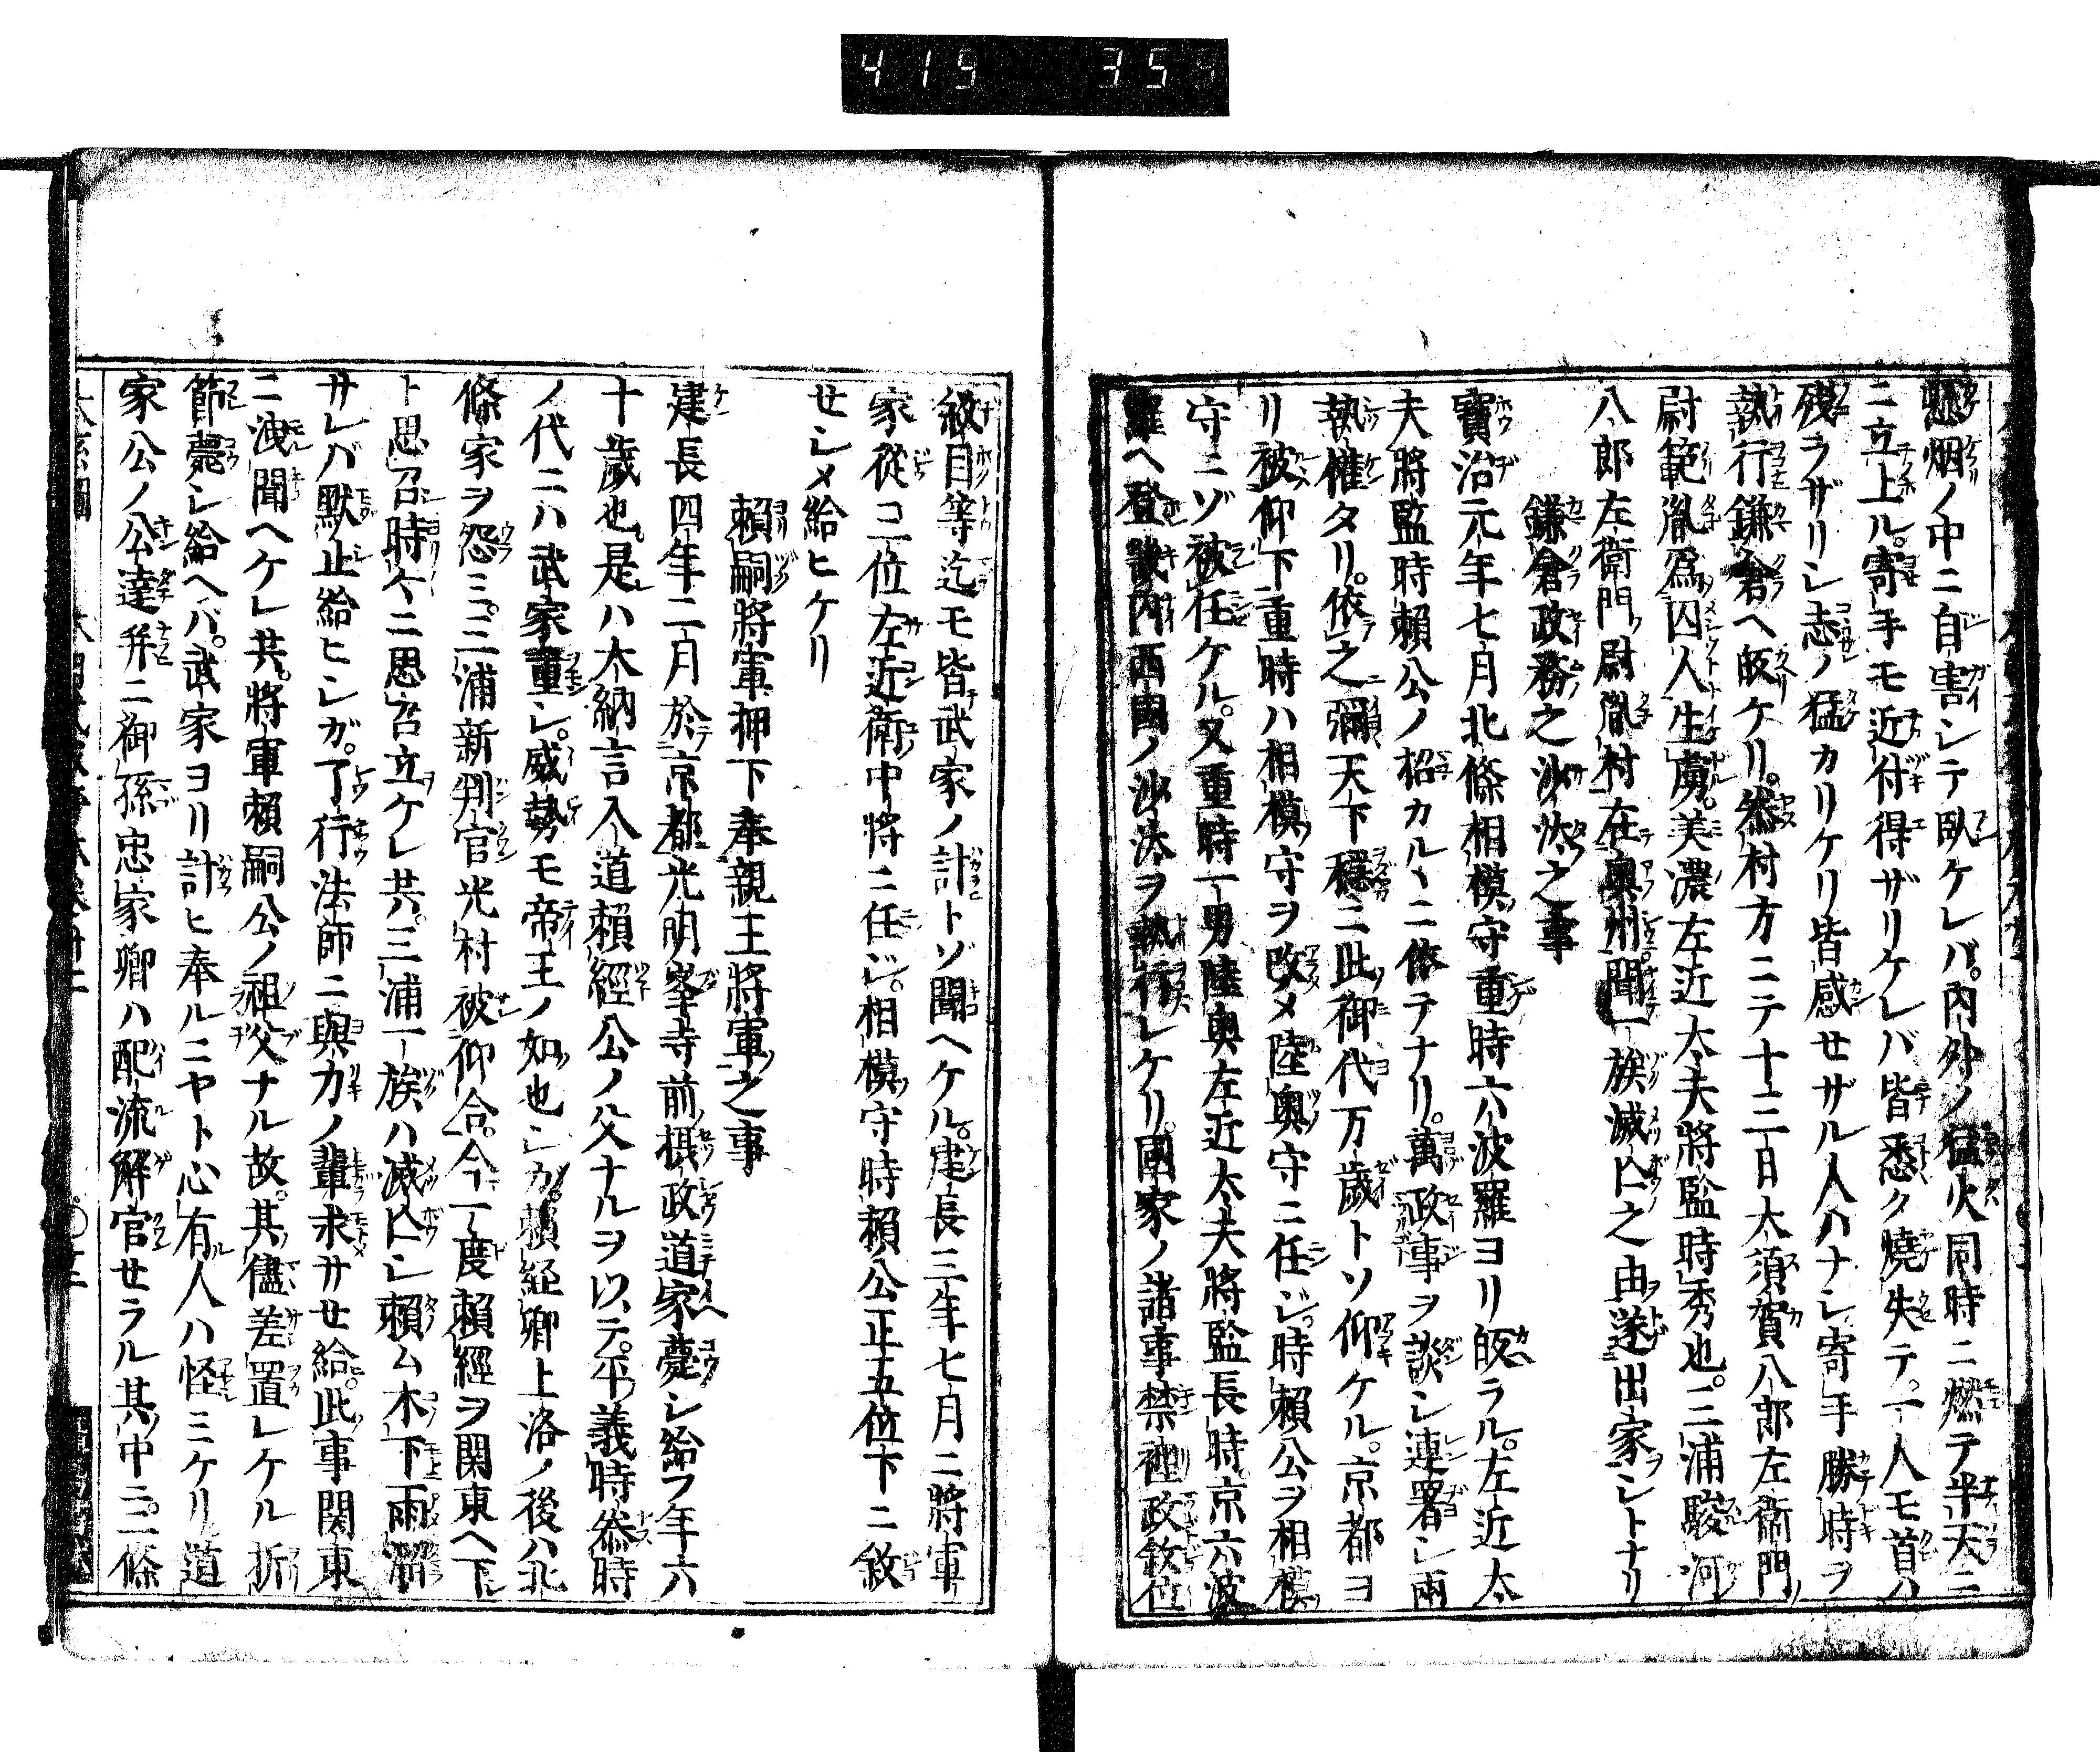 419 35
烟ノ中ニ自害シテ臥ケレバ。内外ノ猛火同時ニ燃テ半天ニ
ニ立上ル。寄手モ近付得ザリケレバ皆悉ク燒失テ。一人モ首ハ
残ラザリシ志ノ猛カリケリ皆感セザル人ハナシ寄手勝時ヲ
執行鎌倉ヘ皈ケリ。泰村方ニテ十三日大須賀八郎左衛門
尉範胤爲囚人生虜。美濃左近大夫將監時秀也。三浦駿河
八郎左衛門尉胤村在奥州聞一族滅亡之由遂出家シトナリ
鎌倉政務之沙汰之事
寶治元年七月北條相模守重時六波羅ヨリ皈ラル。左近太
夫將監時頼公ノ招カルヽニ依テナリ。萬政事ヲ談シ連署シ兩
執權タリ。依之彌天下穩ニ此御代万歳トソ仰ケル。京都ヨ
リ被仰下重時ハ相模守ヲ改メ陸奥守ニ任ジ。時頼公ヲ相模
守ニゾ被任ケル。又重時一男陸奥左近太夫將監長時。京六波
羅ヘ登畿内西國ノ沙汰ヲ執行レケリ。國家ノ諸事禁裡政敘位
敘目等迄モ皆武家ノ計トゾ聞ヘケル。建長三年七月ニ將軍
家從三位左近衛中將ニ任ジ。相模守時頼公正五位下ニ敘
セシメ給ヒケリ
頼嗣將軍押下奉親王將軍之事
建長四年二月於京都光明峯寺前摂政道家薨シ給フ年六
十歳也。是ハ大納言入道頼經公ノ父ナルヲ以テ。平義時泰時
ノ代ニハ武家重シ。威勢モ帝王ノ如也シカ。頼経卿上洛ノ後ハ北
條家ヲ怨ミ。三浦新判官光村被仰合。今一度頼經ヲ関東ヘ下シ
ト思召時々ニ思召立ケレ共。三浦一族ハ滅亡シ頼ム木下雨溜
サレバ默止給ヒシガ。了行法師ニ與力ノ輩求サセ給。此事関東
ニ洩聞ヘケレ共。將軍頼嗣公ノ祖父ナル故。其儘差置レケル折
節薨シ給ヘバ。武家ヨリ計ヒ奉ルニヤト心有人ハ怪ミケリ道
家公ノ公達并ニ御孫忠家卿ハ配流解官セラル其中ニ。二條